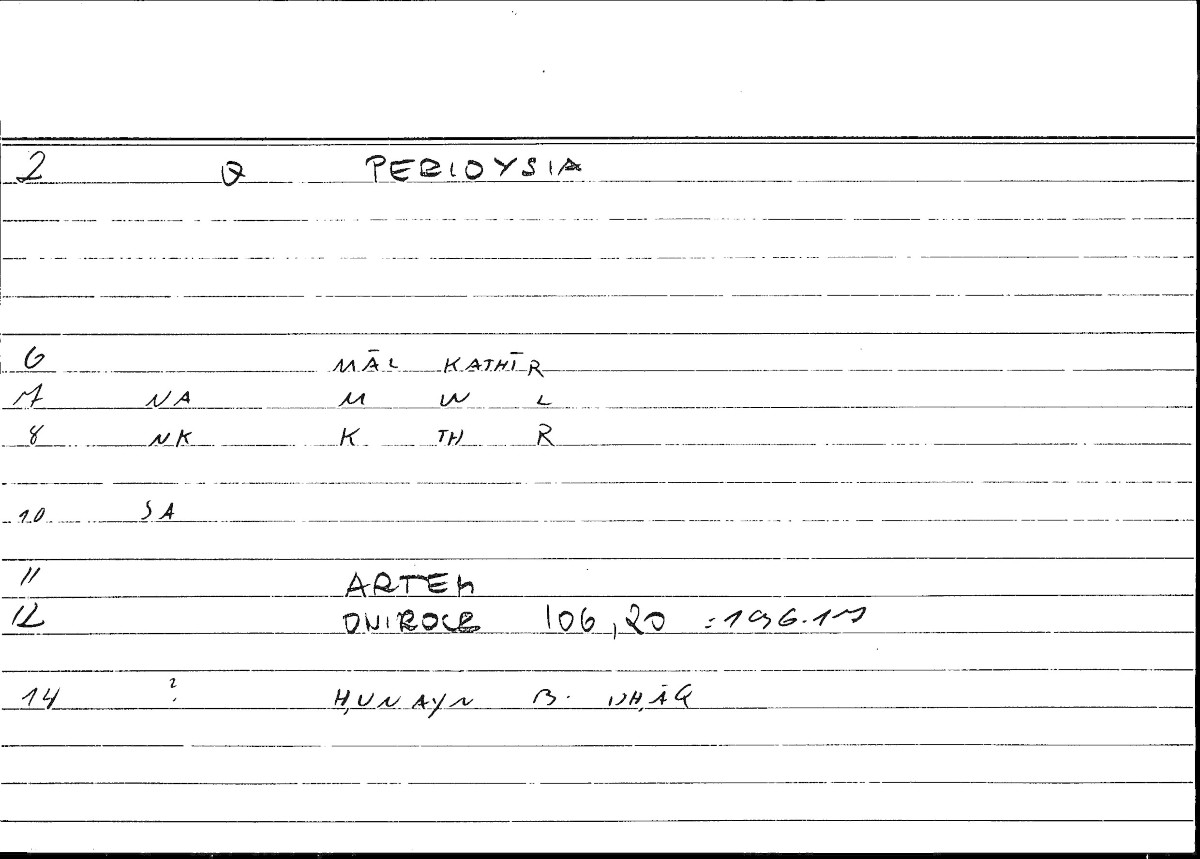 2 Q PERIOYSIA
6 MĀL KATHĪR
7 NA M W L
8 NK K TH R
10 SA
11 ARTEM
12 ONIROCR 106,20 = 196.17
14 ? H,UNAYN B. ISH,ĀQ